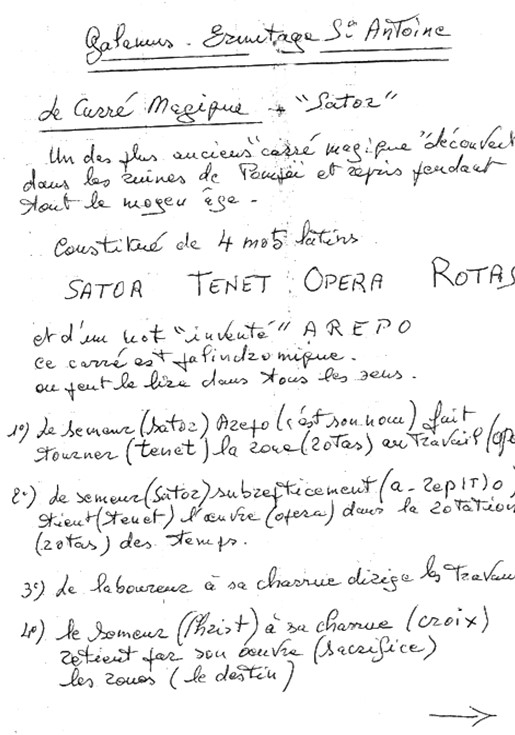 Galamus - Ermitage St Antoine
Le Carré Magique "Sator"
Un des plus anciens "carré magique" découvert
dans les ruines de Pompéi et repris pendant
tout le moyen âge -
Constitué de 4 mots latins
SATOR TENET OPERA ROTAS
et d'un mot "inventé" AREPO
ce carré est palindromique.
on peut le lire dans tous les sens.
1°) Le semeur (sator) Arepo (c'est son nom) fait
tourner (tenet) la roue (rotas) au travail (ope
2°) Le semeur (sator) subrepticement (a-rep(T)o)
tient (tenet) l'œuvre (opera) dans la rotation
(rotas) des temps.
3°) Le laboureur à sa charrue dirige les travau
4°) le semeur (Christ) à sa charrue (croix)
retient par son œuvre (sacrifice)
les roues (le destin)